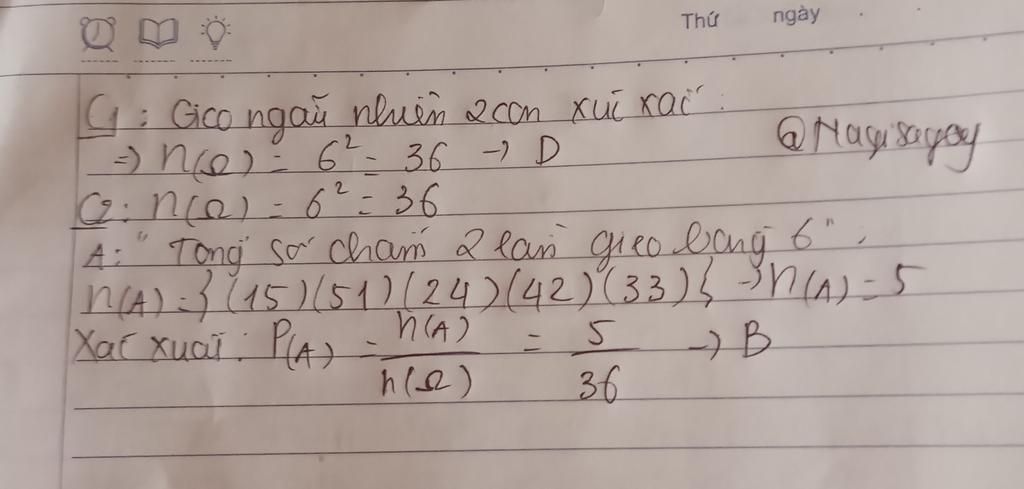 Thứ ngày
C1: Gieo ngẫu nhiên 2 con xúc xắc:
=> n(Ω) = 6² = 36 → D
@Nagisagey
C2: n(Ω) = 6² = 36
A: "Tổng số chấm 2 lần gieo bằng 6":
n(A) = {(15)(51)(24)(42)(33)} → n(A) = 5
Xác xuất: P(A) = n(A)/n(Ω) = 5/36 → B